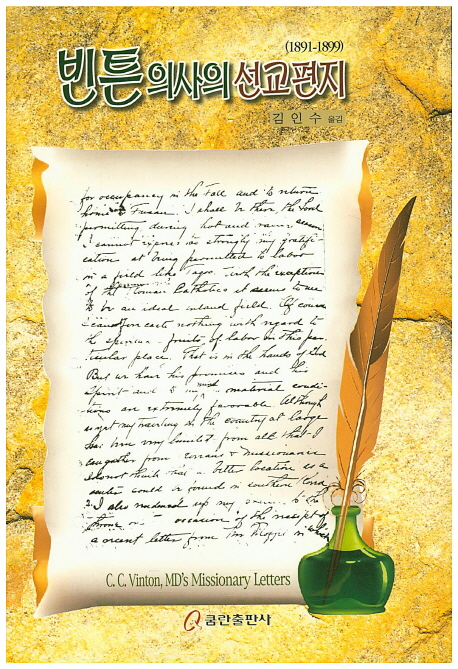 (1891-1899)
빈튼 의사의 선교편지
김인수 옮김
for occupancy in the Fall and to return
home to Fusan. I shall be there, the Lord
permitting during hot and rainy season
I cannot express too strongly my gratifi-
cation at being permitted to labor
in a field like this. With the exception
of the Roman Catholics it seems to me
to be an ideal inland field. Of course
I can forecast nothing with regard to
the spiritual fruits of labor in this par-
ticular place. That is in the hands of God
But we have his promises and his
Spirit and the material condi-
tions are extremely favorable. Although
my in the country at large
has been very limited from all that I
can gather from Koreans & missionaries
I do not think that a better location as a
center could be found in southern Korea
I also up my to the
on occasion of the receipt of
a recent letter from
C. C. Vinton, MD's Missionary Letters
쿰란출판사